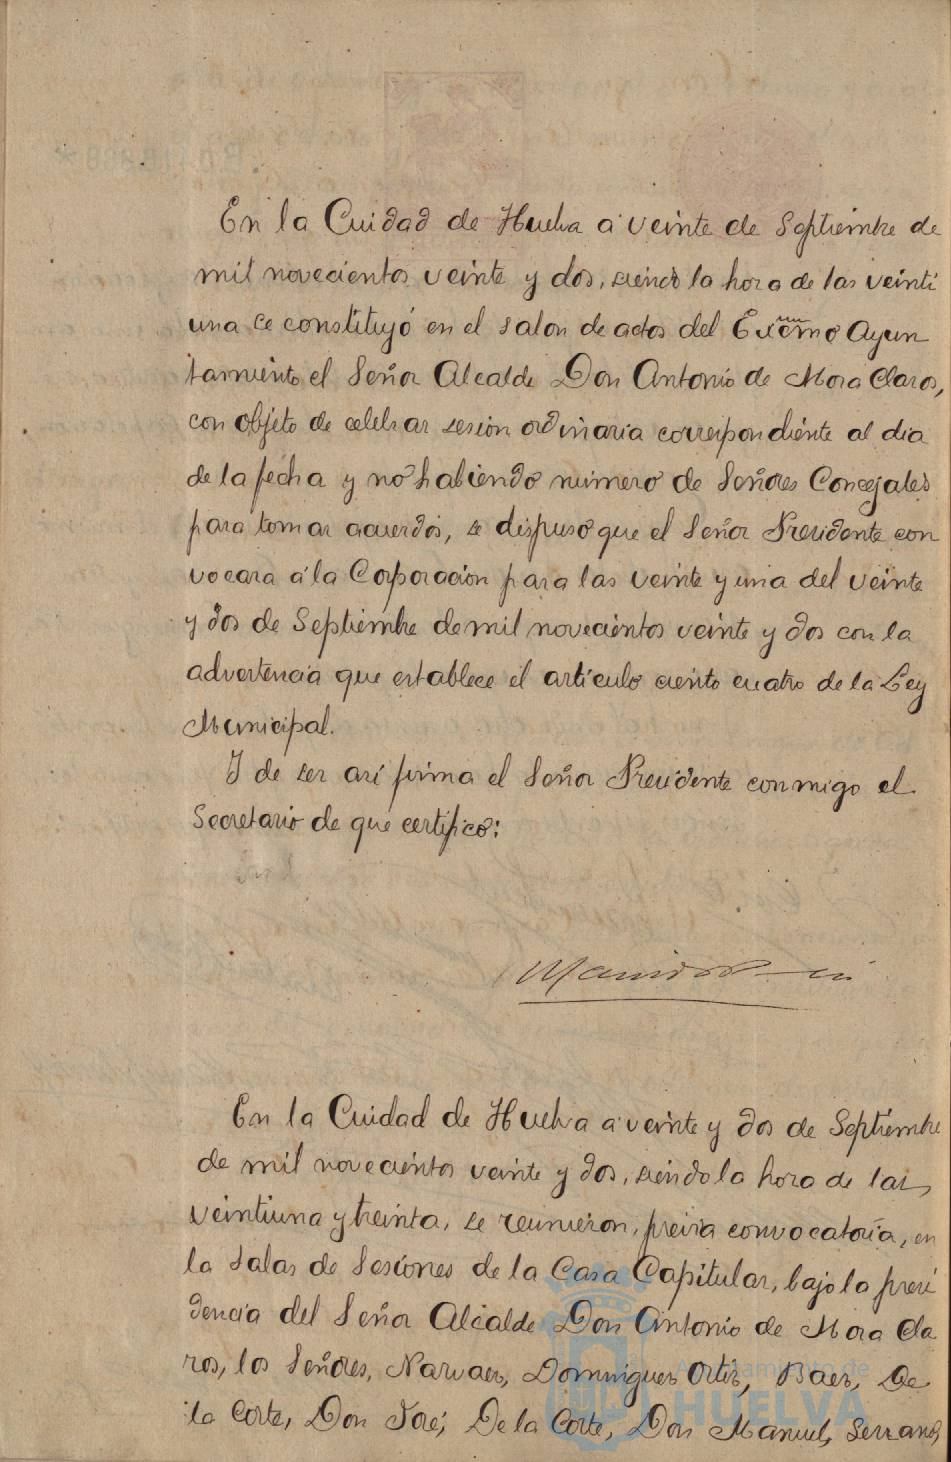 En la Cuidad de Huelva a veinte de Septiembre de
mil novecientos veinte y dos, siendo la hora de las veinti
una se constituyó en el salon de actos del Excmo Ayun
tamiento el Señor Alcalde Don Antonio de Mora Claros,
con objeto de celebrar sesion ordinaria correspondiente al dia
de la fecha y no habiendo número de Señores Concejales
para tomar acuerdos, se dispuso que el Señor Presidente con
vocara a la Corporacion para las veinte y una del veinte
y dos de Septiembre de mil novecientos veinte y dos con la
advertencia que establece el artículo ciento cuatro de la Ley
Municipal.
Y de ser así firma el Señor Presidente conmigo el
Secretario de que certifico:
En la Cuidad de Huelva a veinte y dos de Septiembre
de mil novecientos veinte y dos, siendo la hora de las
veintiuna y treinta, se reunieron, previa convocatoria, en
la Salas de Sesiones de la Casa Capitular, bajo la presi
dencia del Señor Alcalde Don Antonio de Mora Cla
ros, los Señores, Narvaez, Dominguez Ortiz, Baez, De
la Corte, Don José; De la Corte, Don Manuel, Serrano,
Ayuntamiento de
HUELVA